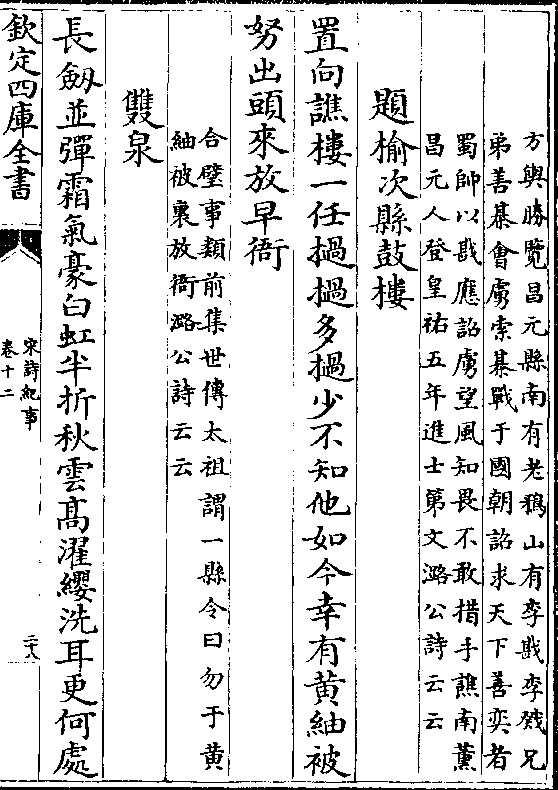 方輿勝覽昌元縣南有老鵶山有李戡李戣兄
弟善棊會虜索棊戰于國朝詔求天下善奕者
蜀帥以戡應詔虜望風知畏不敢措手譙南薰
昌元人登皇祐五年進士第文潞公詩云云
題榆次縣鼓樓
置向譙樓一任撾撾多撾少不知他如今幸有黃紬被
努出頭來放早衙
合璧事類前集世傳太祖謂一縣令曰勿于黃
紬被裏放衙潞公詩云云
雙泉
長劒並彈霜氣豪白虹半折秋雲髙濯纓洗耳更何處
欽定四庫全書
宋詩紀事
卷十二
二十八